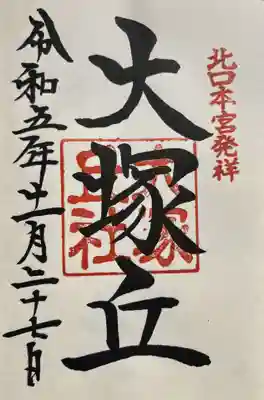 北口本宮発祥
大塚丘
大塚丘社
令和五年十一月二十七日